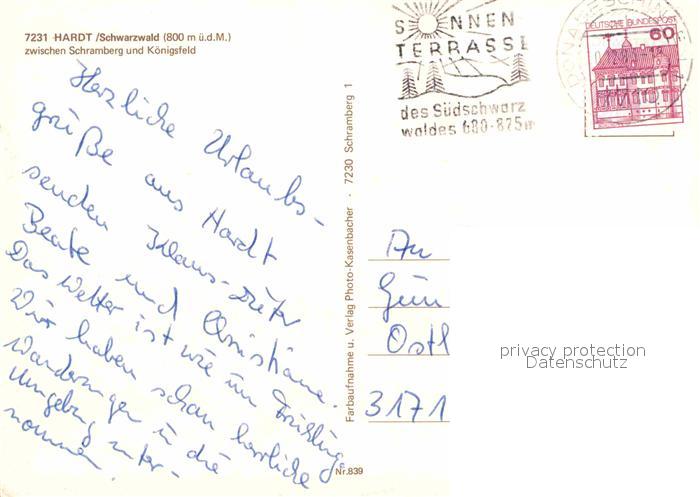 7231 HARDT /Schwarzwald (800 m ü.d.M.)
zwischen Schramberg und Königsfeld
Herzliche Urlaubs-
grüße aus Hardt
senden Klaus-Dieter
Beate und Christiane.
Das Wetter ist wie im Frühling.
Wir haben schon herrliche
Wanderungen in die
Umgebung unter-
nommen.
Farbaufnahme u. Verlag Photo-Kasenbacher · 7230 Schramberg 1
Nr.839
SONNEN
TERRASSE
des Südschwarz
waldes 680-875m
DONAUESCHINGEN
DEUTSCHE BUNDESPOST
60
An
Ostl
3171
privacy protection
Datenschutz